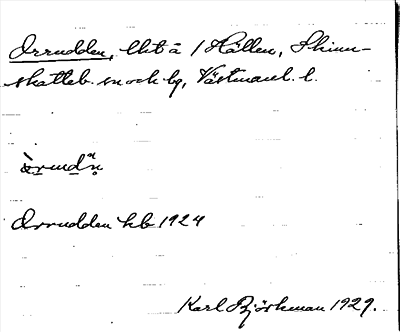 Orrudden, lht å 1 Hällen, Skinn-
skatteb. sn och bg, Västmanl. l.
òrrudn
Orrudden hb 1924
Karl Björkman 1929.